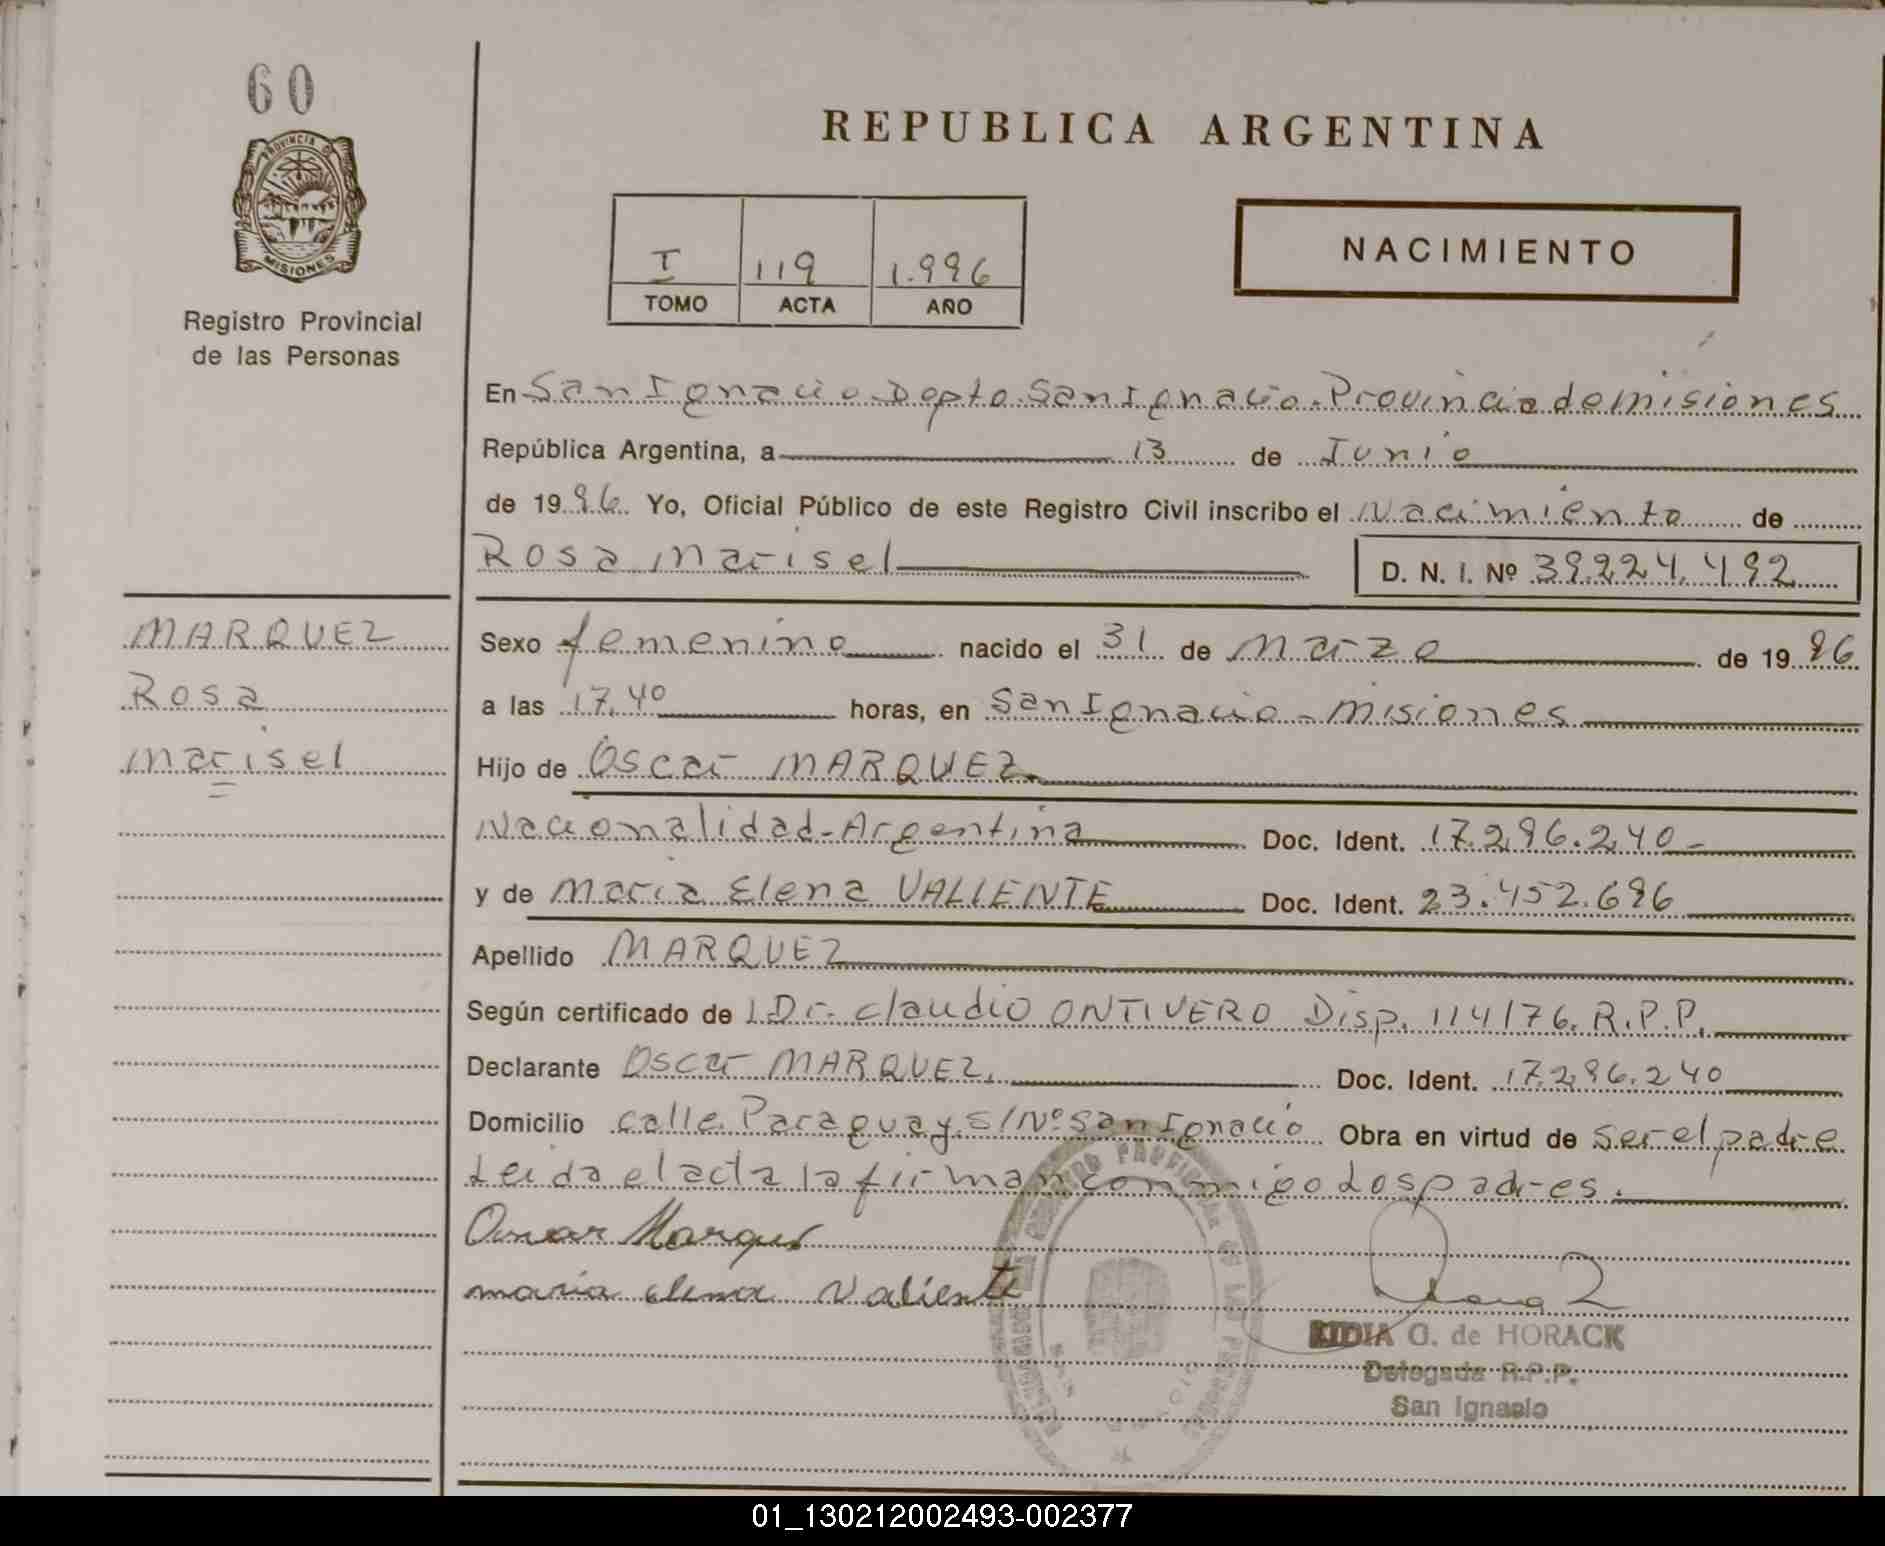 60
PROVINCIA D
MISIONES
Registro Provincial
de las Personas
REPUBLICA ARGENTINA
I 119 1.996
TOMO ACTA AÑO
NACIMIENTO
En San Ignacio Depto San Ignacio. Provincia de misiones
República Argentina, a 13 de Junio
de 1996 Yo, Oficial Público de este Registro Civil inscribo el Nacimiento de
Rosa Marisel D. N. I. Nº 39.224.492
MARQUEZ
Rosa
Marisel
Sexo femenino nacido el 31 de Marzo de 1996
a las 17,40 horas, en San Ignacio - Misiones
Hijo de Oscar MARQUEZ
Nacionalidad-Argentina Doc. Ident. 17.296.240-
y de Maria Elena VALIENTE Doc. Ident. 23.452.696
Apellido MARQUEZ
Según certificado de Dr. Claudio ONTIVERO Disp. 114/76. R.P.P.
Declarante Oscar MARQUEZ. Doc. Ident. 17.296.240
Domicilio calle Paraguay S/Nº San Ignacio Obra en virtud de ser el padre
Leida el acta la firman conmigo Los padres.
maria elena Valiente
LIDIA G. de HORACK
Delegada R.P.P.
San Ignacio
01_130212002493-002377